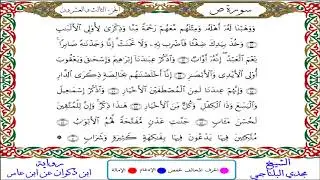 سورة ص
الجزء الثالث والعشرون
وَوَهَبْنَا لَهُۥٓ أَهْلَهُۥ وَمِثْلَهُم مَّعَهُمْ رَحْمَةً مِّنَّا وَذِكْرَىٰ لِأُو۟لِى ٱلْأَلْبَٰبِ
وَخُذْ بِيَدِكَ ضِغْثًا فَٱضْرِب بِّهِۦ وَلَا تَحْنَثْ إِنَّا وَجَدْنَٰهُ صَابِرًا
نِّعْمَ ٱلْعَبْدُ إِنَّهُۥٓ أَوَّابٌ وَٱذْكُرْ عِبَٰدَنَآ إِبْرَٰهِيمَ وَإِسْحَٰقَ وَيَعْقُوبَ
أُو۟لِى ٱلْأَيْدِى وَٱلْأَبْصَٰرِ إِنَّآ أَخْلَصْنَٰهُم بِخَالِصَةٍ ذِكْرَى ٱلدَّارِ
وَإِنَّهُمْ عِندَنَا لَمِنَ ٱلْمُصْطَفَيْنَ ٱلْأَخْيَارِ وَٱذْكُرْ إِسْمَٰعِيلَ
وَٱلْيَسَعَ وَذَا ٱلْكِفْلِ وَكُلٌّ مِّنَ ٱلْأَخْيَارِ هَٰذَا ذِكْرٌ وَإِنَّ لِلْمُتَّقِينَ
لَحُسْنَ مَـَٔابٍ جَنَّٰتِ عَدْنٍ مُّفَتَّحَةً لَّهُمُ ٱلْأَبْوَٰبُ
مُتَّكِـِٔينَ فِيهَا يَدْعُونَ فِيهَا بِفَٰكِهَةٍ كَثِيرَةٍ وَشَرَابٍ
الشيخ
مجدي البلتاجي
الحرف المخالف لحفص
الإدغام
الإمالة
رواية
ابن ذكوان عن ابن عامر